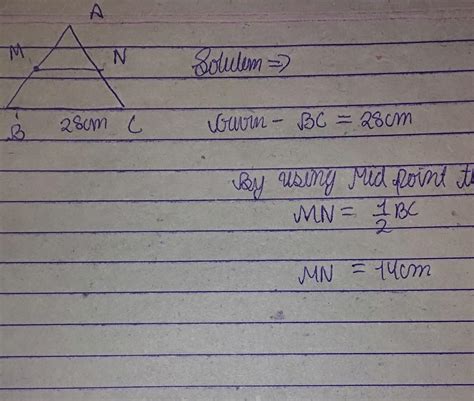 A
M N
B 28cm C
Solution ⇒
Given - BC = 28cm
By using Mid point th
MN = 1/2 BC
MN = 14cm